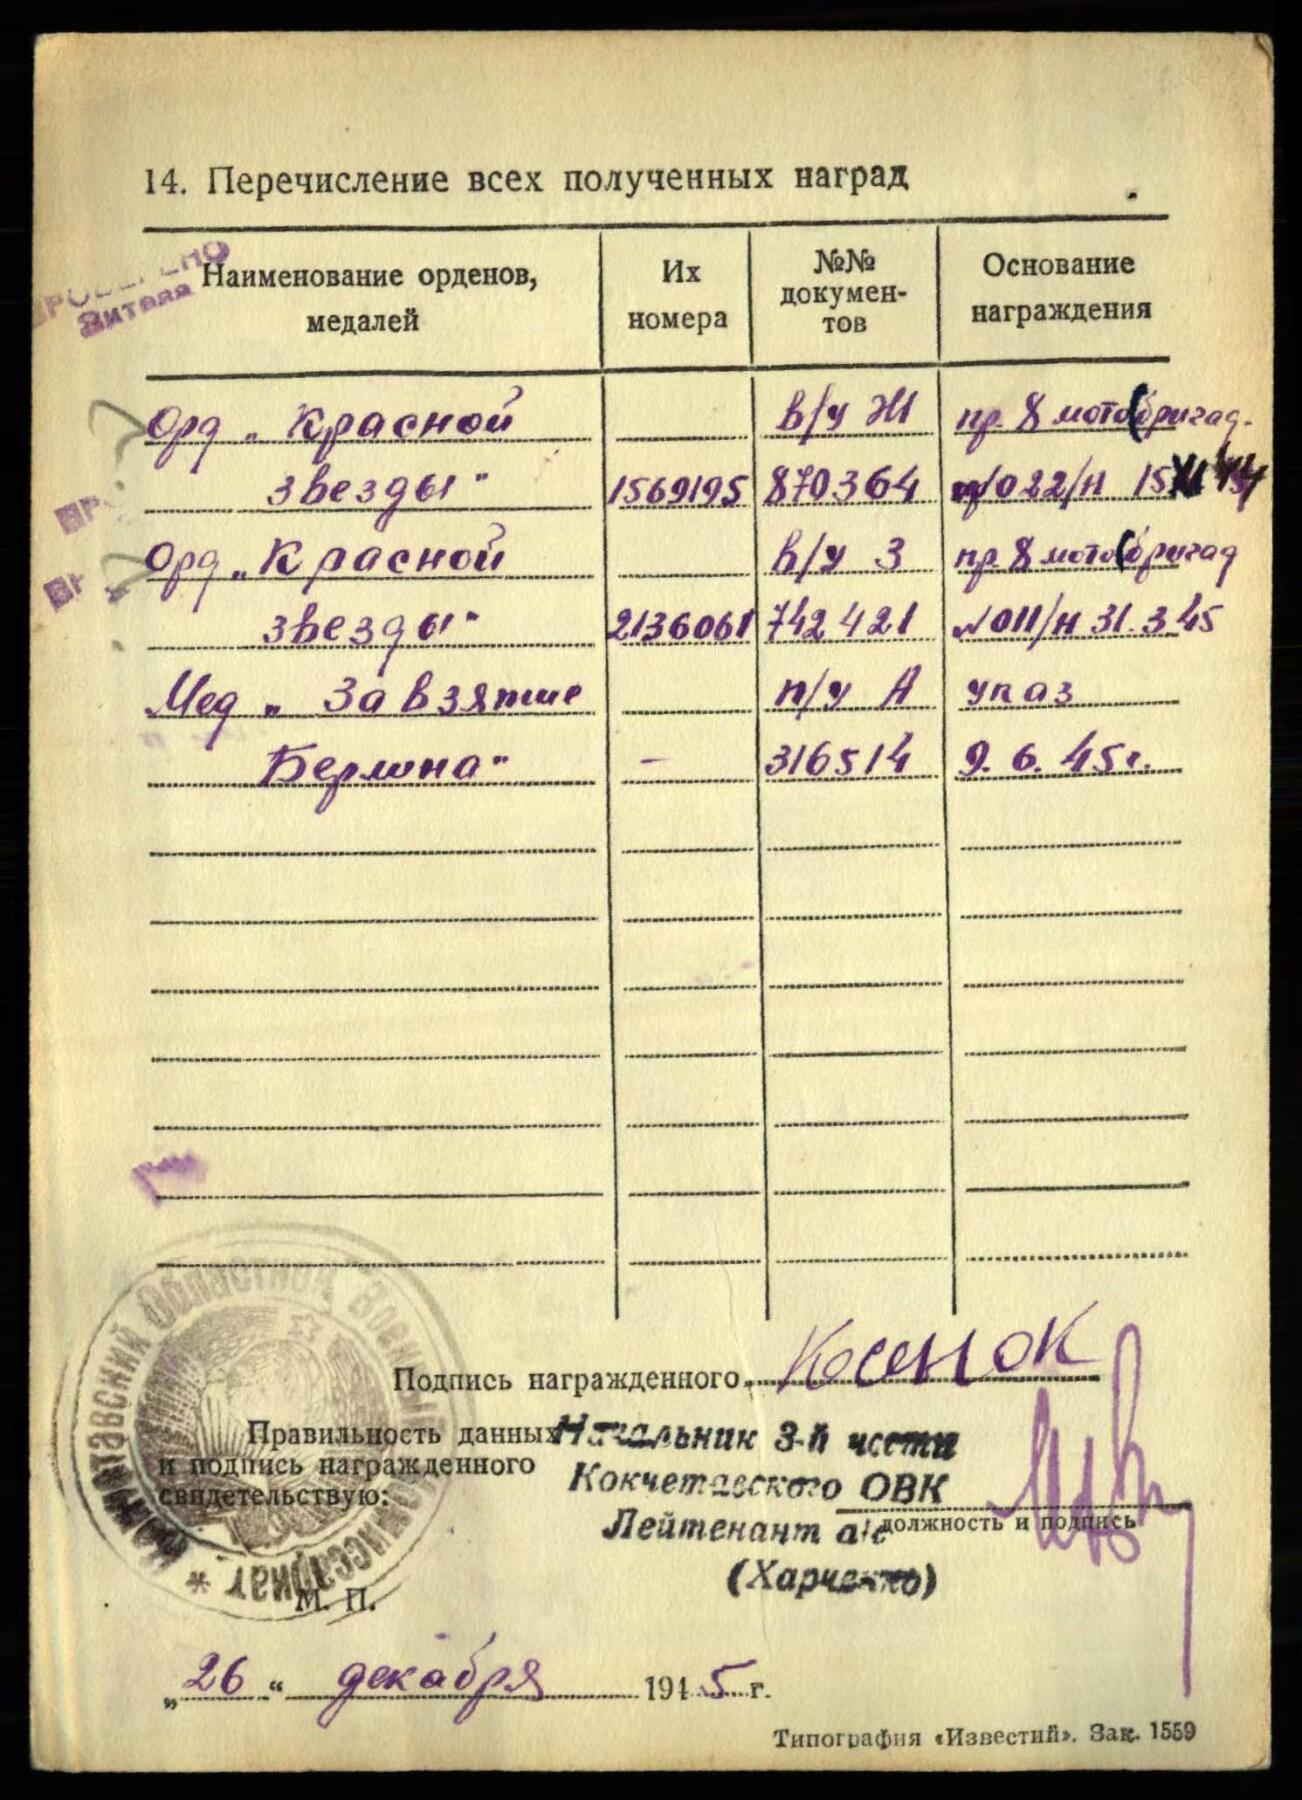 14. Перечисление всех полученных наград
ПРОВЕРЕНО
Наименование орденов, медалей
Их номера
№№ документов
Основание награждения
Орд „Красной в/у Ж пр. 8 мотобригад.
звезды" 1569195 870364 №022/н 15 XI 44
Орд „Красной в/у З пр. 8 мотобригад
звезды" 2136061 742421 №011/н 31.3.45
Мед „За взятие п/у А указ
Берлина" – 316514 9.6.45г.
Подпись награжденного Косенок
Правильность данных
и подпись награжденного
свидетельствую:
Начальник 3-й части
Кокчетавского ОВК
Лейтенант а/с
(Харченко)
должность и подпись
Кокчетавский Областной Военный Комиссариат *
М. П.
„26" декабря 1945 г.
Типография «Известий». Зак. 1559